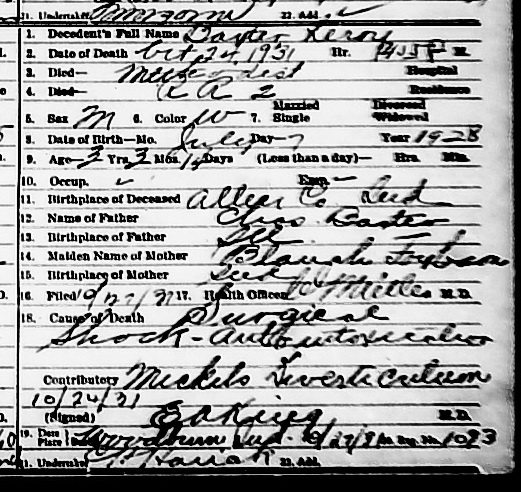 21. Undertaker 22. Add.
1. Decedent's Full Name Baxter Leroy
2. Date of Death Oct 24, 1931 Hr. M.
3. Died— Hospital
4. Died— R R 2 Residence
5. Sex M 6. Color W 7. Married Single Divorced Widowed
8. Date of Birth—Mo. July Day— 7 Year 1928
9. Age— 3 Yrs. 3 Mos. Days (Less than a day)— Hrs. Min.
10. Occup. Emp. —
11. Birthplace of Deceased Allen Co Ind
12. Name of Father Chas Baxter
13. Birthplace of Father Ill
14. Maiden Name of Mother Blanch
15. Birthplace of Mother Ind
16. Filed 17. Health Officer Miller M.D.
18. Cause of Death Surgical
Shock - Autointoxication
Contributory Meckels Diverticulum
10/24/31
(Signed) E A King M.D.
19. Date Place Woodburn, Ind. 10/27/31 As Reg. No. 1093
21. Undertaker 22. Add.